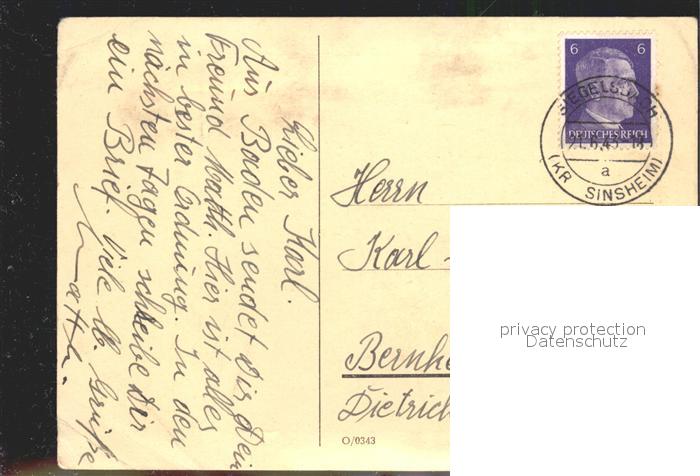 Lieber Karl.
Aus Baden sendet Dir Dein
Freund Matth. Hier ist alles
in bester Ordnung. In den
nächsten Tagen schreibe Dir
ein Brief. Viele lb. Grüße
Matth.
6 6
DEUTSCHES REICH
SIEGELSBACH
21.6.43
a
(KR SINSHEIM)
Herrn
Karl
Bernhe
Dietrich
O/0343
privacy protection
Datenschutz